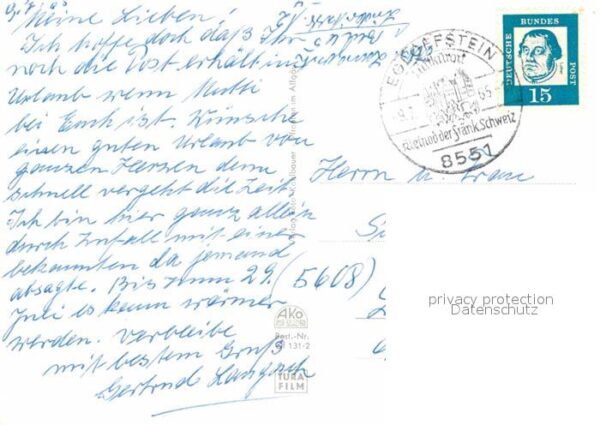 Meine Lieben!
Ich hoffe doch daß Ihr
noch die Post erhält im
Urlaub wenn Mutti
bei Euch ist. Wünsche
einen guten Urlaub von
ganzen Herzen denn
schnell vergeht die Zeit
Ich bin hier ganz allein
durch Zufall mit einer
bekannten da jemand
absagte. Bis zum 29.
Juli es kann wärmer
werden. Verbleibe
mit bestem Gruß
Gertrud
EGLOFFSTEIN
Kleinod der fränk. Schweiz
8551
DEUTSCHE BUNDES POST
15
Herrn u. Frau
(5608)
privacy protection
Datenschutz
AKO
Best.-Nr.
131-2
TURA
FILM